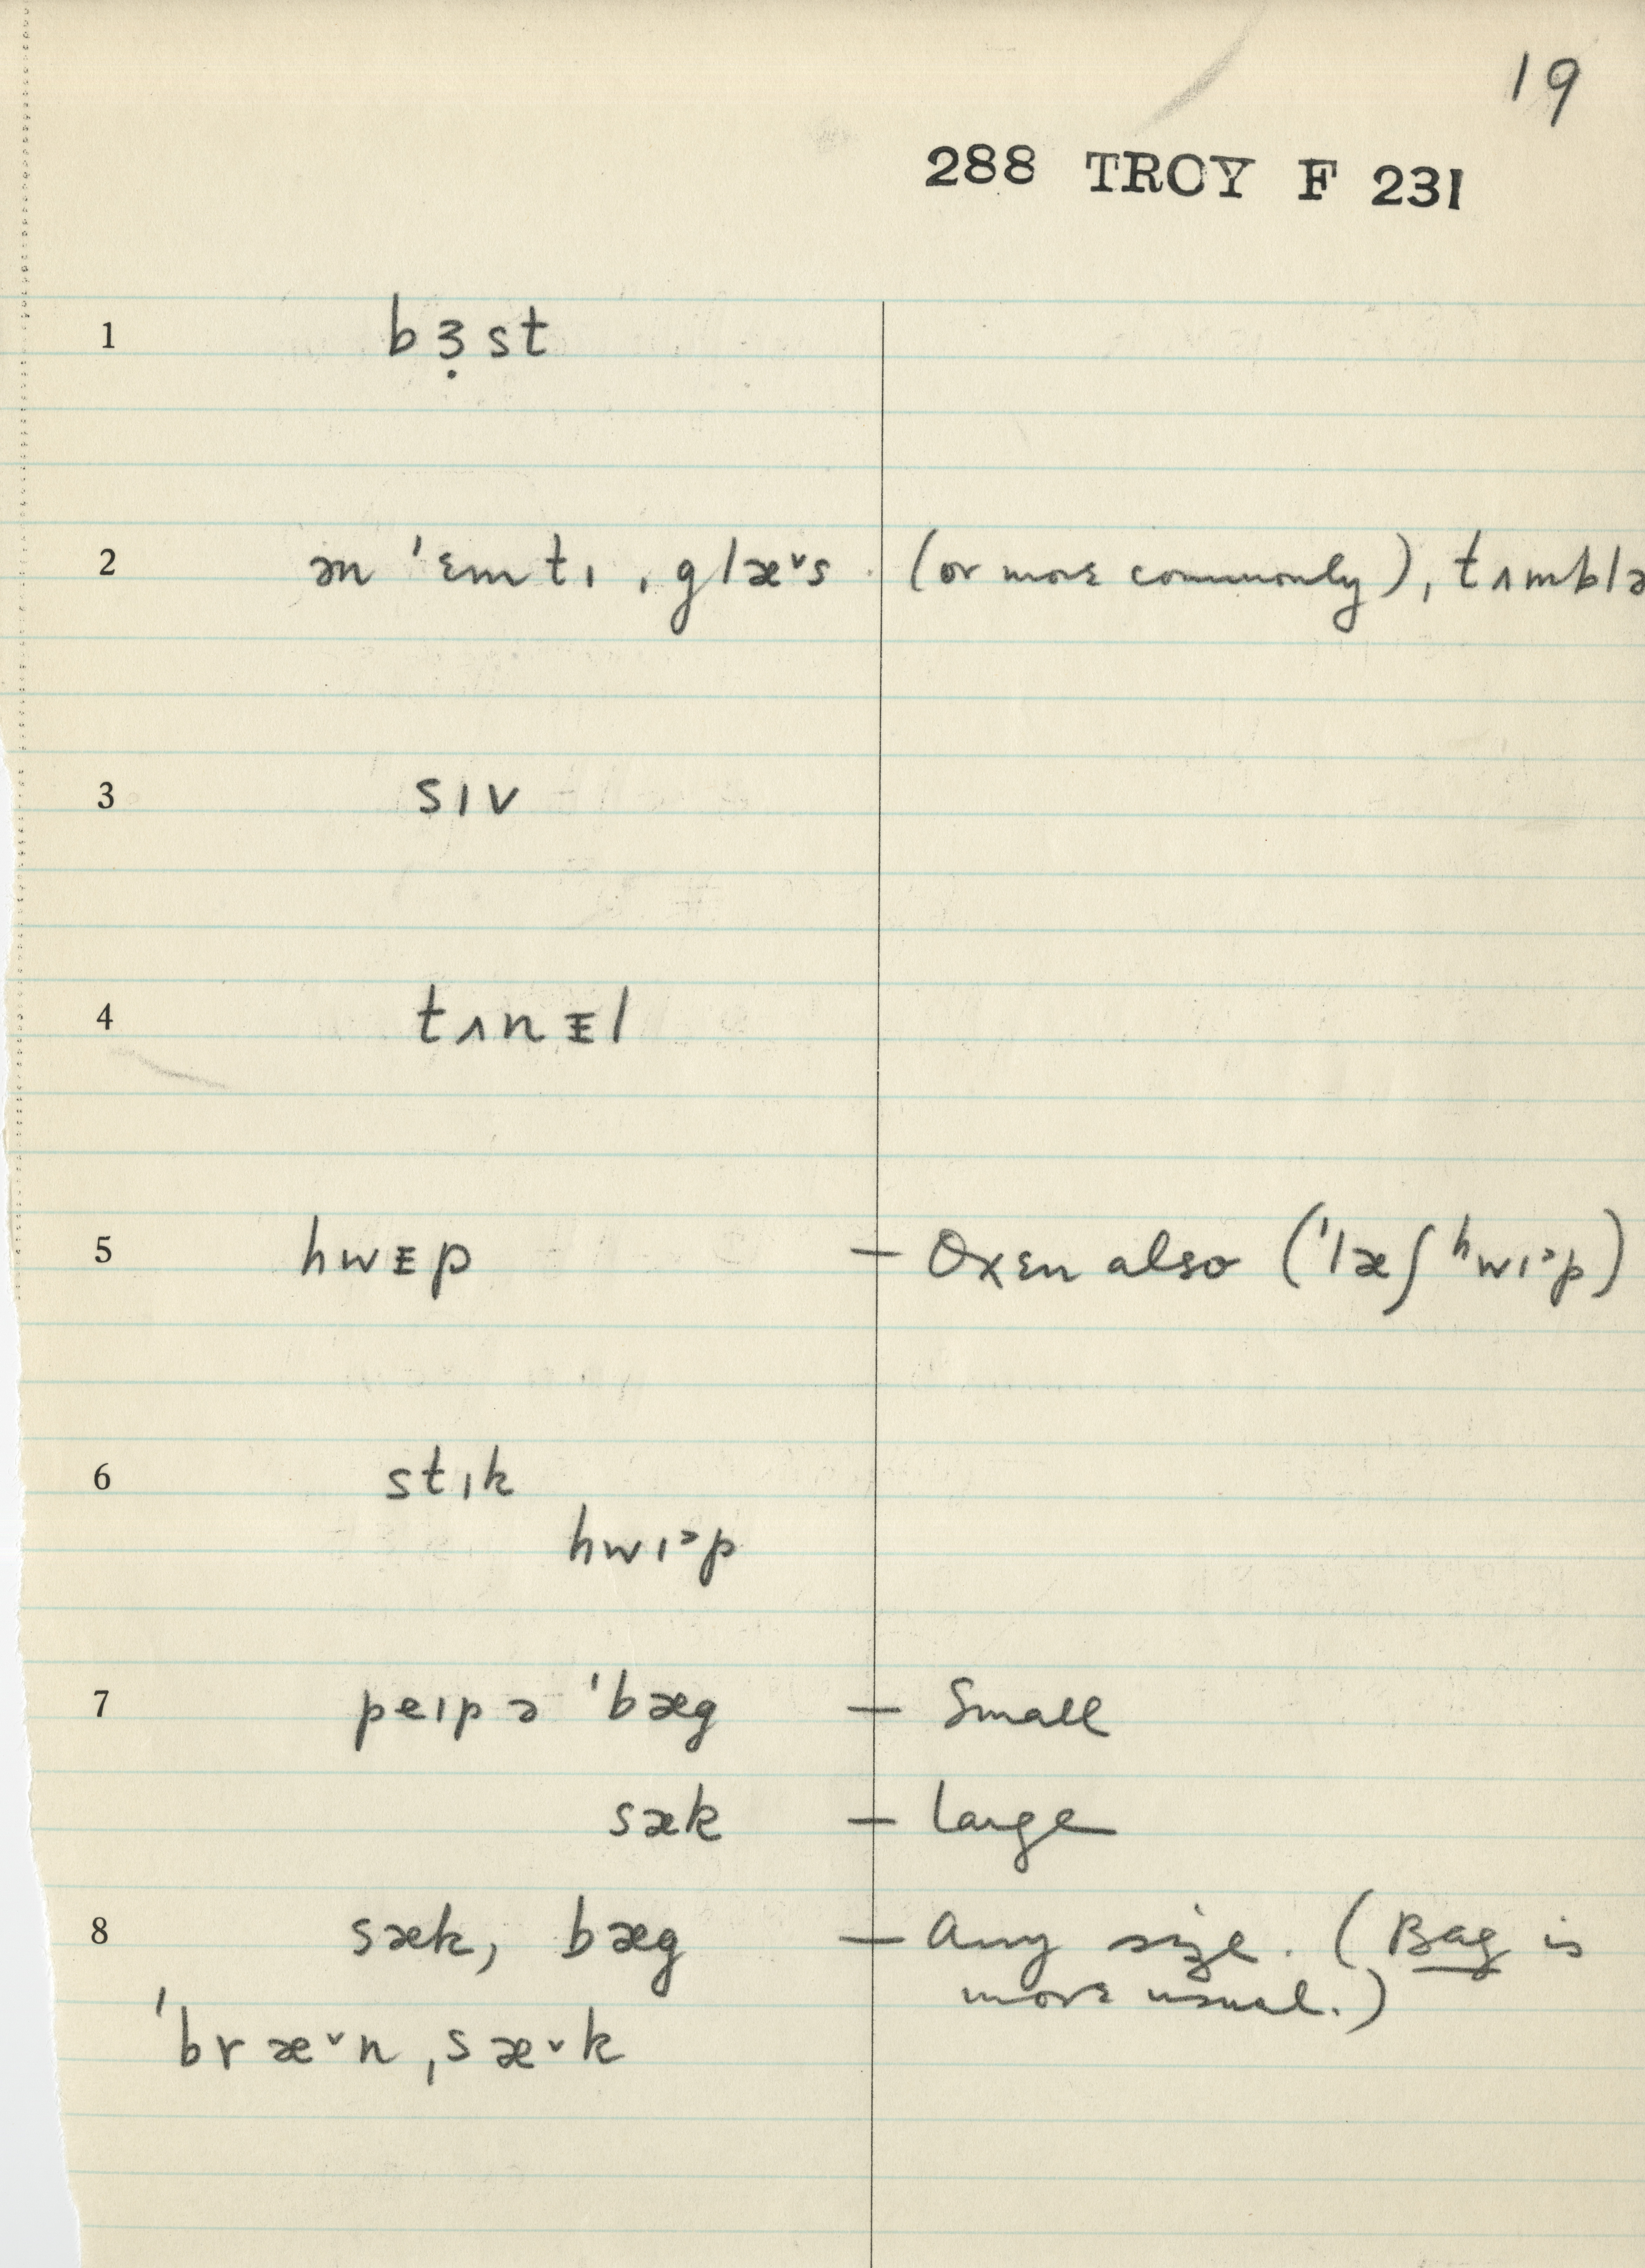 19
288 TROY F 231
1 bɜ̣st
2 ən ˈɛmtɪ ˌglæ˅s (or more commonly), tʌmblə
3 sɪv
4 tʌnᵻl
5 hwᵻp — Oxen also (ˈlæʃ ʰwɪ˃p)
6 stɪk
hwɪ˃p
7 peɪpə ˈbæg — Small
sæk — Large
8 sæk, bæg — Any size. (Bag is
more usual.)
ˈbræ˅n ˌsæ˅k